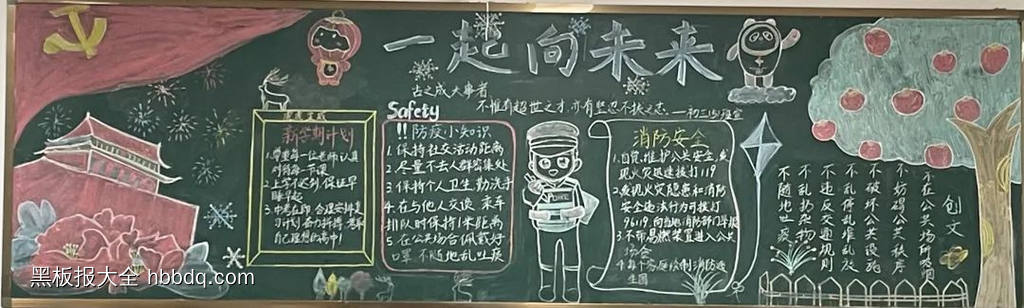 一起向未来
古之成大事者
不惟有超世之才,亦有坚忍不拔之志。
新学期计划
1.学重每一位老师认真
对待每一节课
2.上学不迟到 保证早
睡早起
自己理想的高中!
Safety
!!防疫小知识
1.保持社交活动距离
2.尽量不去人群密集处
3.保持个人卫生,勤洗手
4.在与他人交谈 乘车
排队时保持1米距离
5.在公共场合佩戴好
口罩 不随地乱吐痰
消防安全
1.自觉维护公共安全,发
现火灾迅速拨打119
2.发现火灾隐患和消防
安全违法行为可拨打
96119,向当地消防部门举报
3.不带易燃装置进入公共
场合
创文
不在公共场所吸烟
不妨碍公共秩序
不破坏公共设施
不乱停乱放
不违反交通规则
不乱扔杂物
不随地吐痰
黑板报大全 hbbdq.com